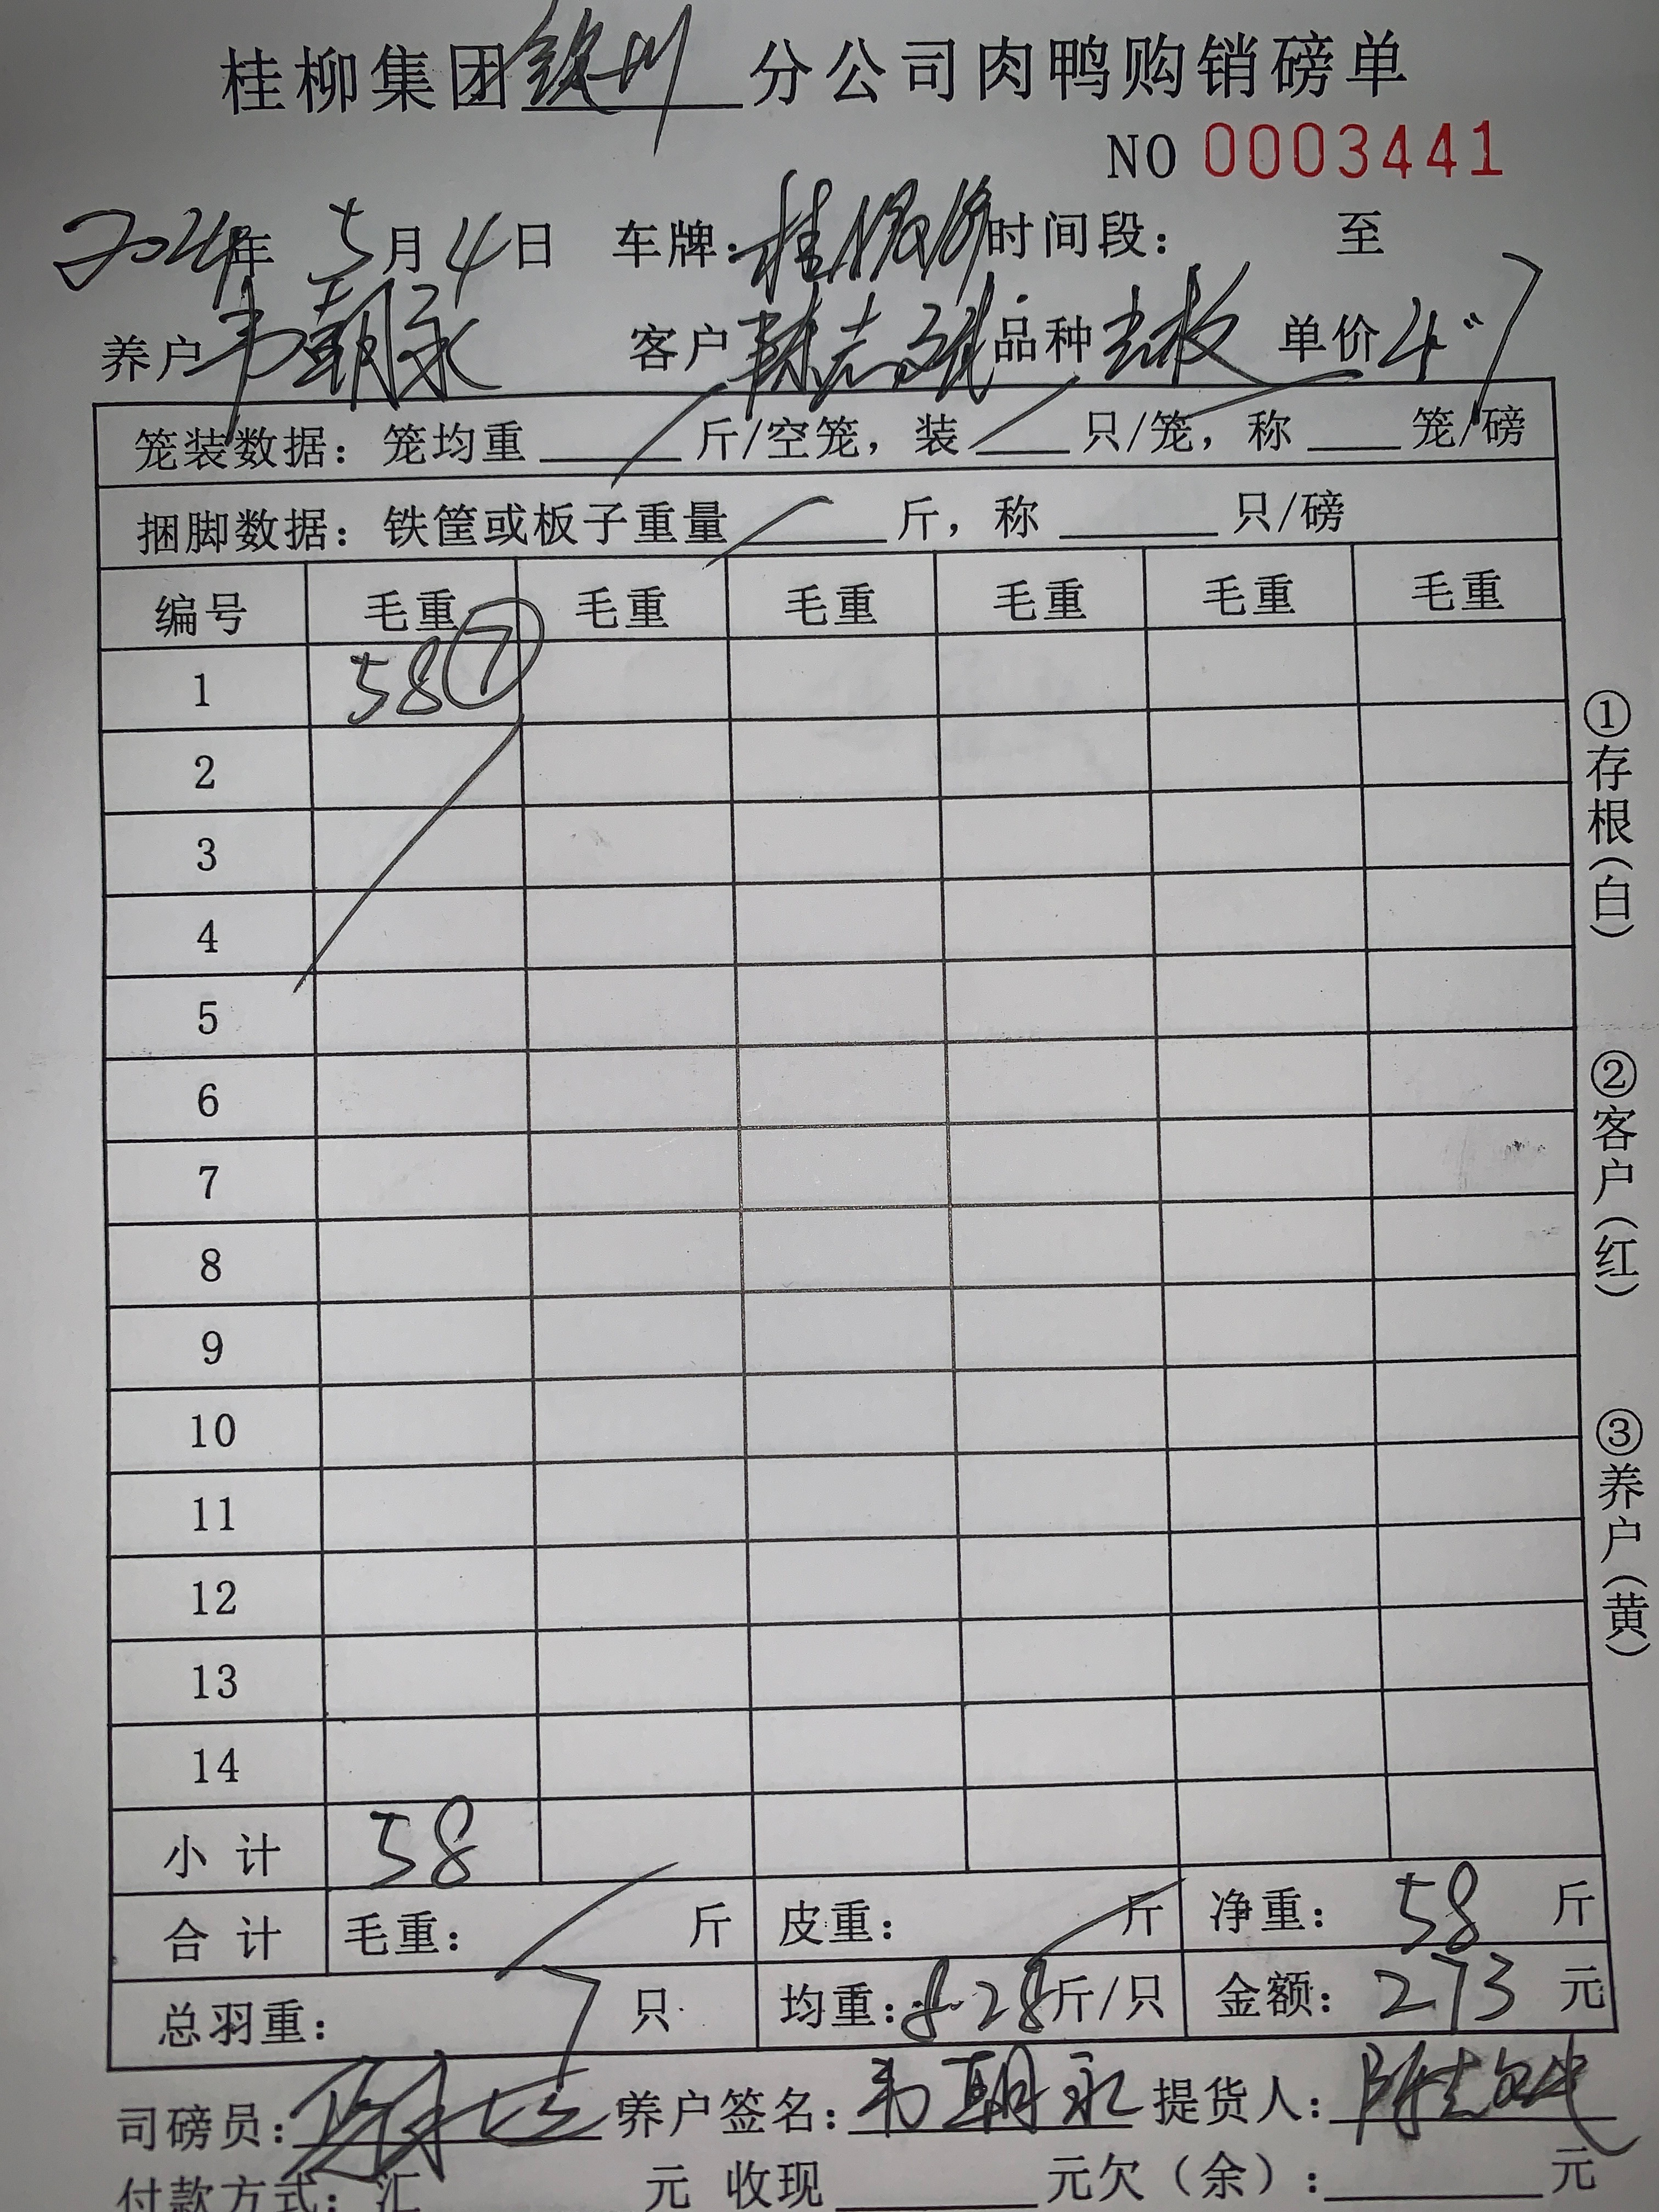 桂柳集团钦州分公司肉鸭购销磅单
NO 0003441
2024年 5月4日 车牌：桂 时间段： 至
养户 韦朝永 客户 陈志 品种 单价 4.7
笼装数据：笼均重____斤/空笼，装____只/笼，称____笼/磅
捆脚数据：铁筐或板子重量____斤，称____只/磅
编号 毛重 毛重 毛重 毛重 毛重 毛重
1 58 ⑦
2
3
4
5
6
7
8
9
10
11
12
13
14
小计 58
合计 毛重： 斤 皮重： 斤 净重：58斤
总羽重：7只 均重：8.28斤/只 金额：273元
司磅员： 养户签名：韦朝永 提货人：陈志
付款方式：汇 元 收现____元欠（余）：____元
①存根（白）
②客户（红）
③养户（黄）